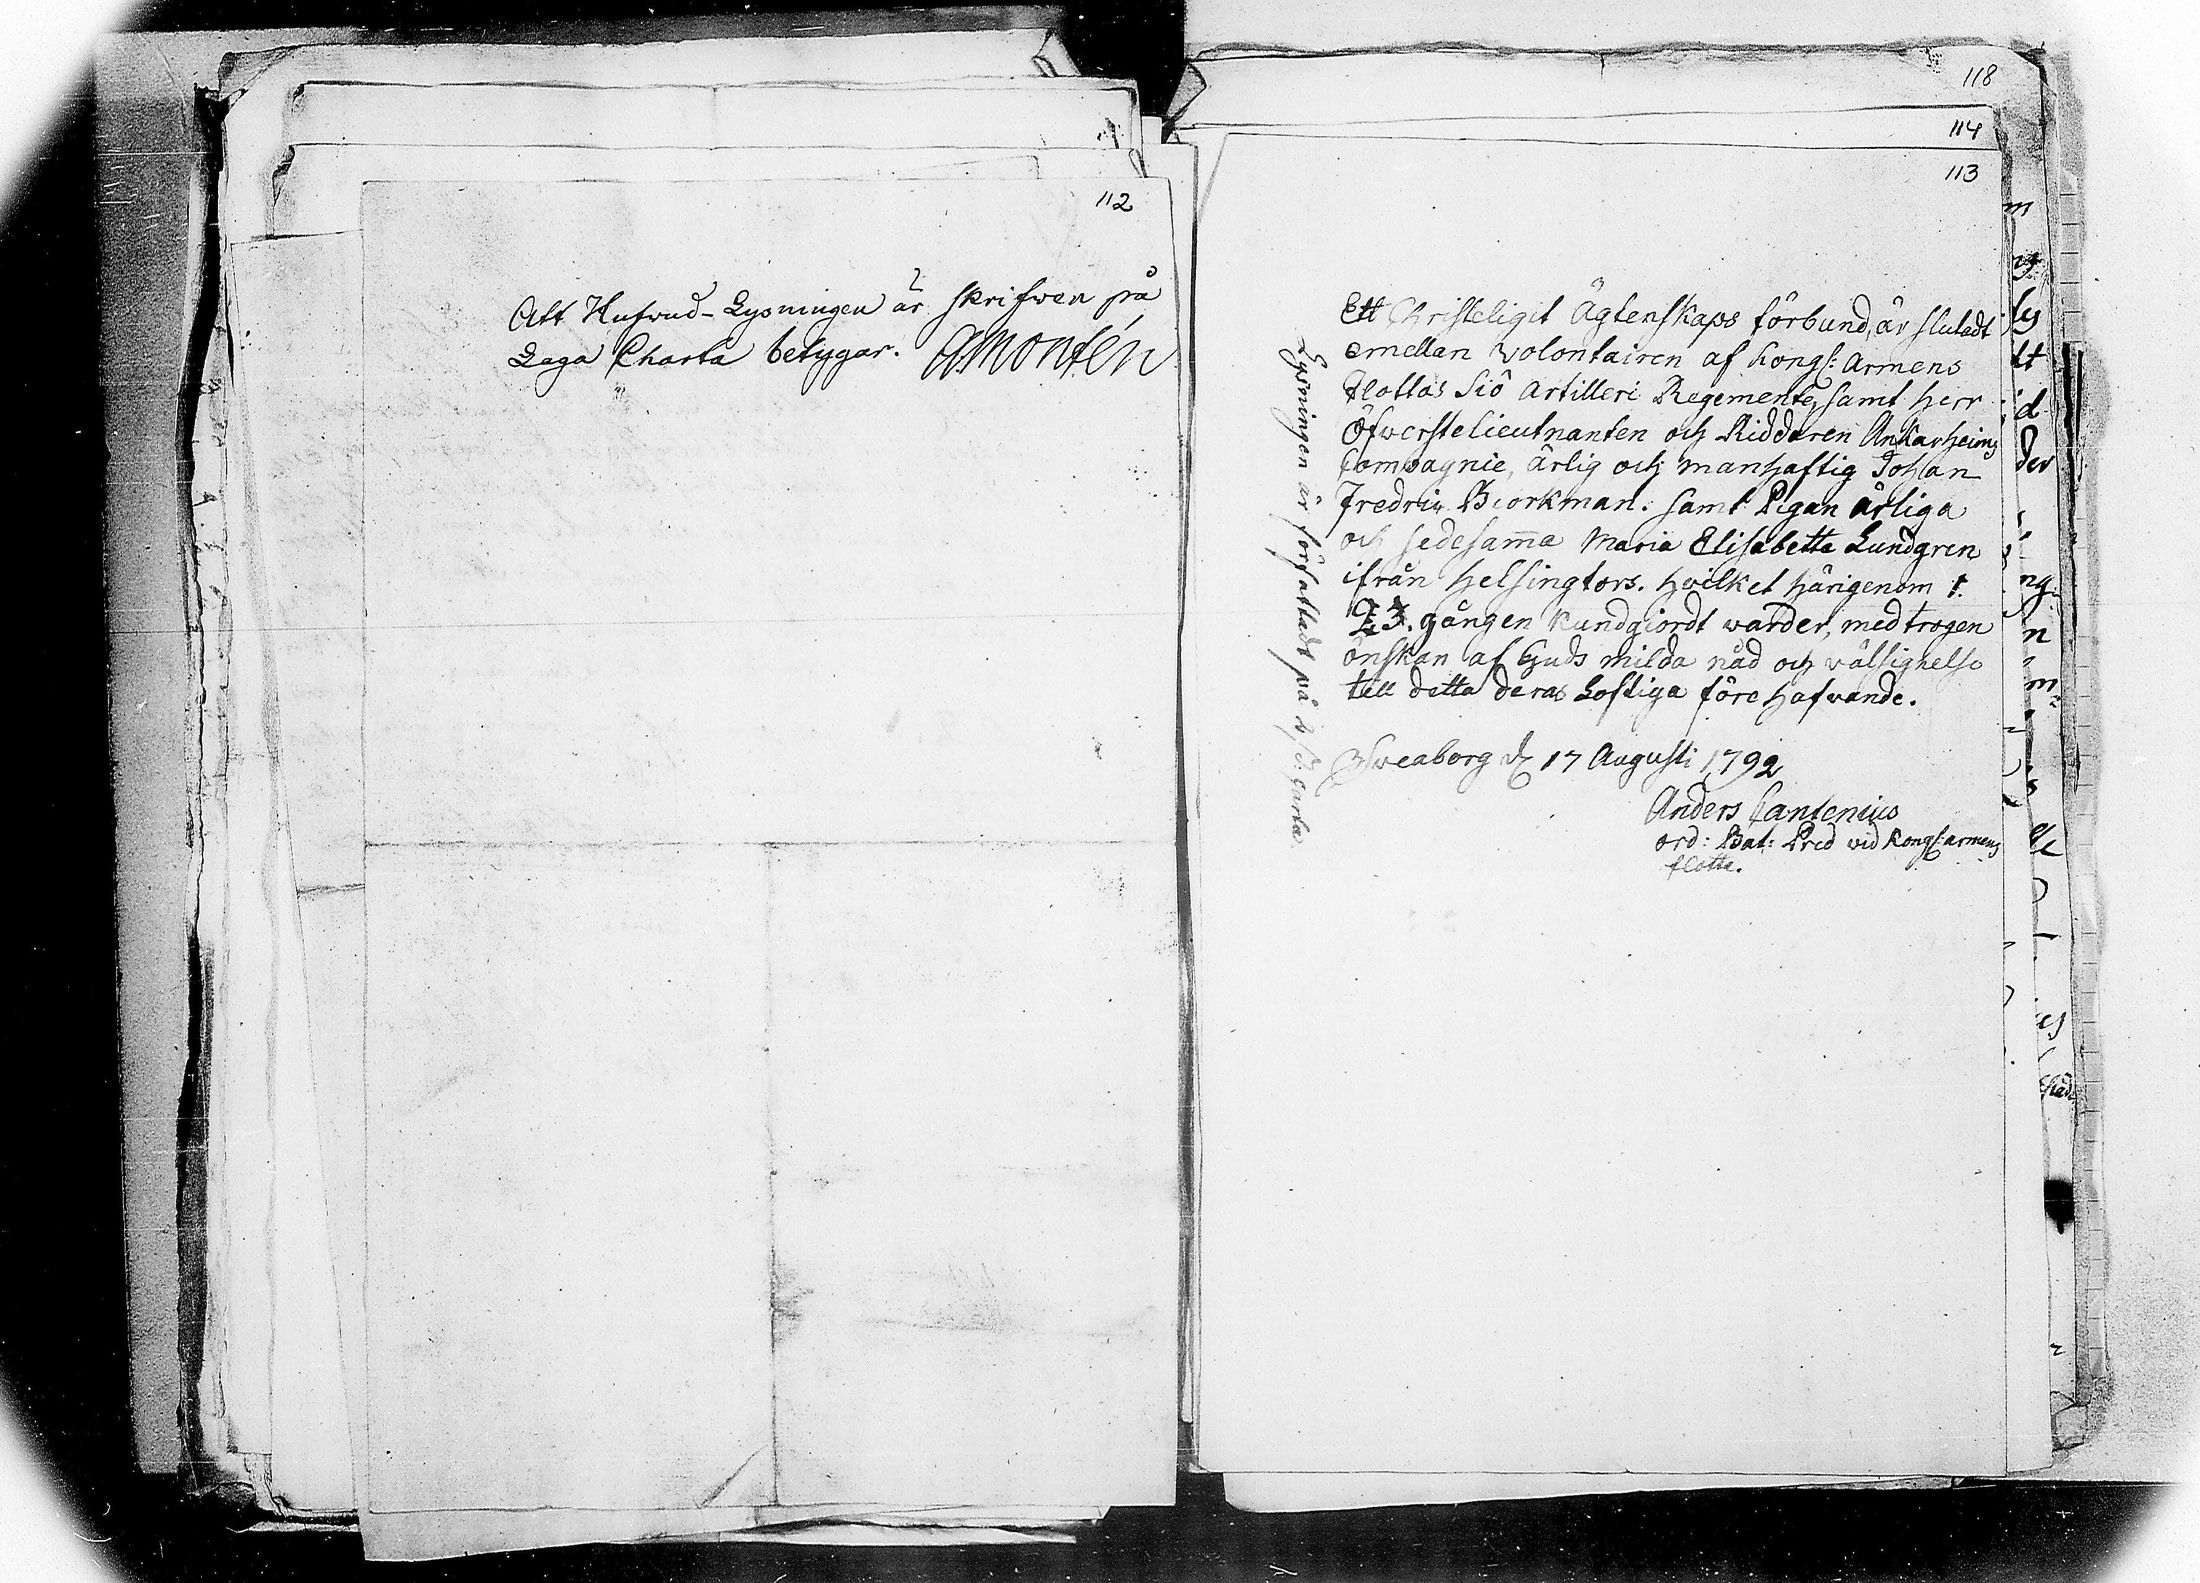 112
Att Hufwud-Lysningen är skrifwen på
Laga Charta betygar. GMontén
118
114
113
Ett Christeligit Ägtenskaps förbund, är slutadt
emellan Volontairen af Kongl: Armens
Flottas Siö Artilleri Regemente, samt Herr
Öfwerstelieutnanten och Riddaren Ankarheims
Compagnie, ärlig och manhaftig Johan
Fredric Biorkman. samt Pigan ärliga
och sedesam̄a Maria Elisabetta Lundgren
ifrån Helsingfors. Hvilket härigenom 1.
2 3. gången kundgiordt warder, med trogen
önskan af Guds milda nåd och välsignelse
till detta deras Lofliga förehafwande.
Sweaborg d 17 Augusti 1792
Anders Cantenius
ord: Bat: Pred vid Kongl: armens
flotta.
Lysningen är författadt på Carta